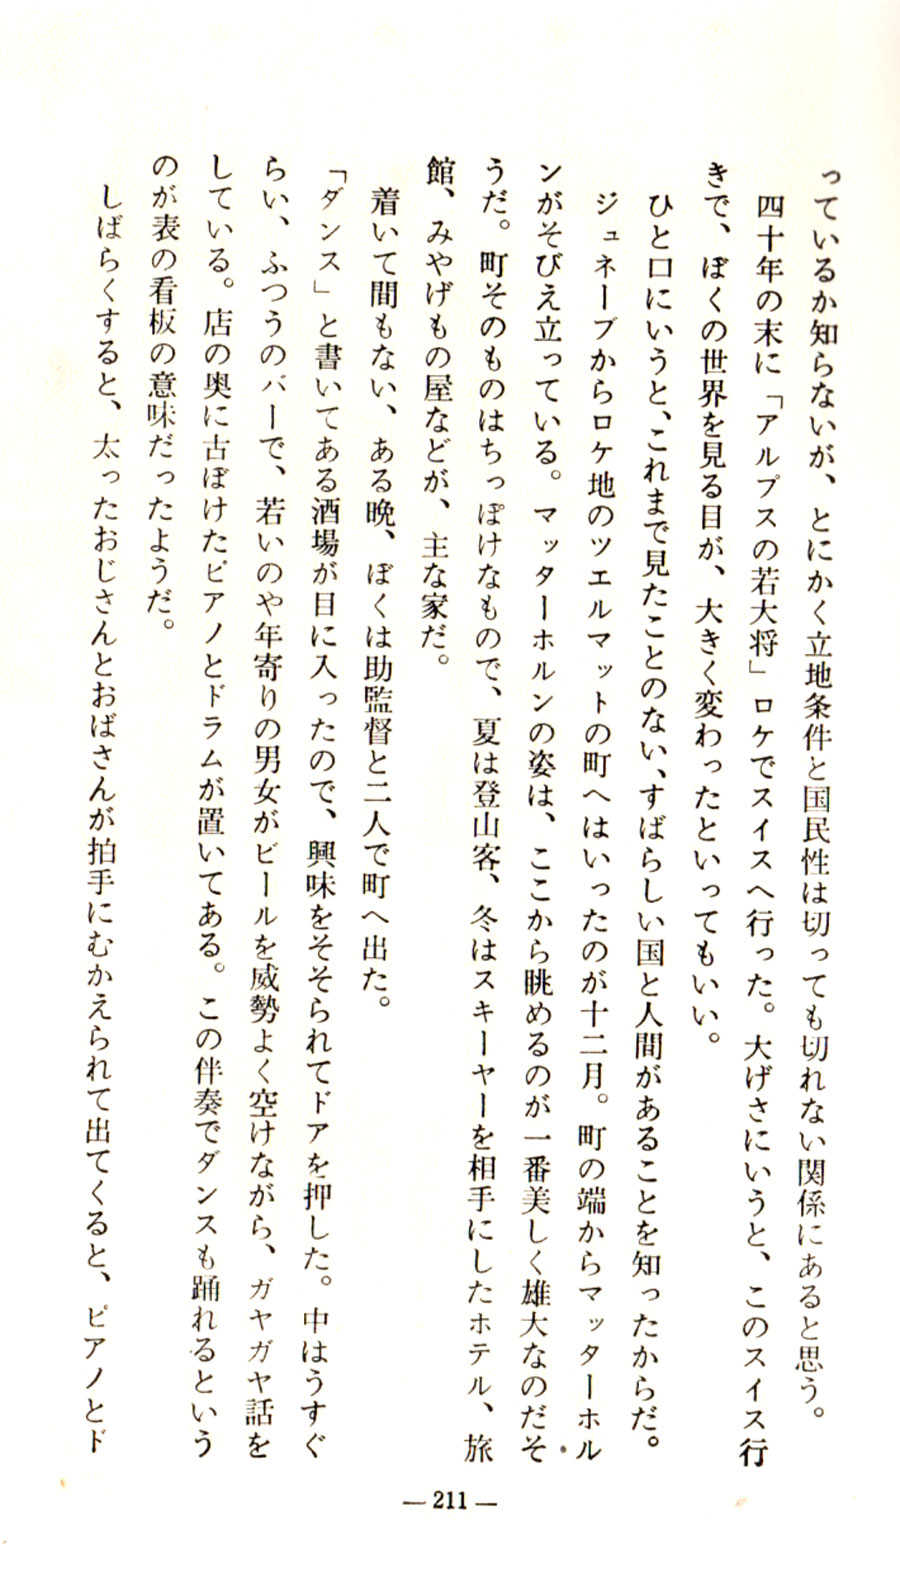 っているか知らないが、とにかく立地条件と国民性は切っても切れない関係にあると思う。
四十年の末に「アルプスの若大将」ロケでスイスへ行った。大げさにいうと、このスイス行
きで、ぼくの世界を見る目が、大きく変わったといってもいい。
ひと口にいうと、これまで見たことのない、すばらしい国と人間があることを知ったからだ。
ジュネーブからロケ地のツエルマットの町へはいったのが十二月。町の端からマッターホル
ンがそびえ立っている。マッターホルンの姿は、ここから眺めるのが一番美しく雄大なのだそ
うだ。町そのものはちっぽけなもので、夏は登山客、冬はスキーヤーを相手にしたホテル、旅
館、みやげもの屋などが、主な家だ。
着いて間もない、ある晩、ぼくは助監督と二人で町へ出た。
「ダンス」と書いてある酒場が目に入ったので、興味をそそられてドアを押した。中はうすぐ
らい、ふつうのバーで、若いのや年寄りの男女がビールを威勢よく空けながら、ガヤガヤ話を
している。店の奥に古ぼけたピアノとドラムが置いてある。この伴奏でダンスも踊れるという
のが表の看板の意味だったようだ。
しばらくすると、太ったおじさんとおばさんが拍手にむかえられて出てくると、ピアノとド
— 211 —